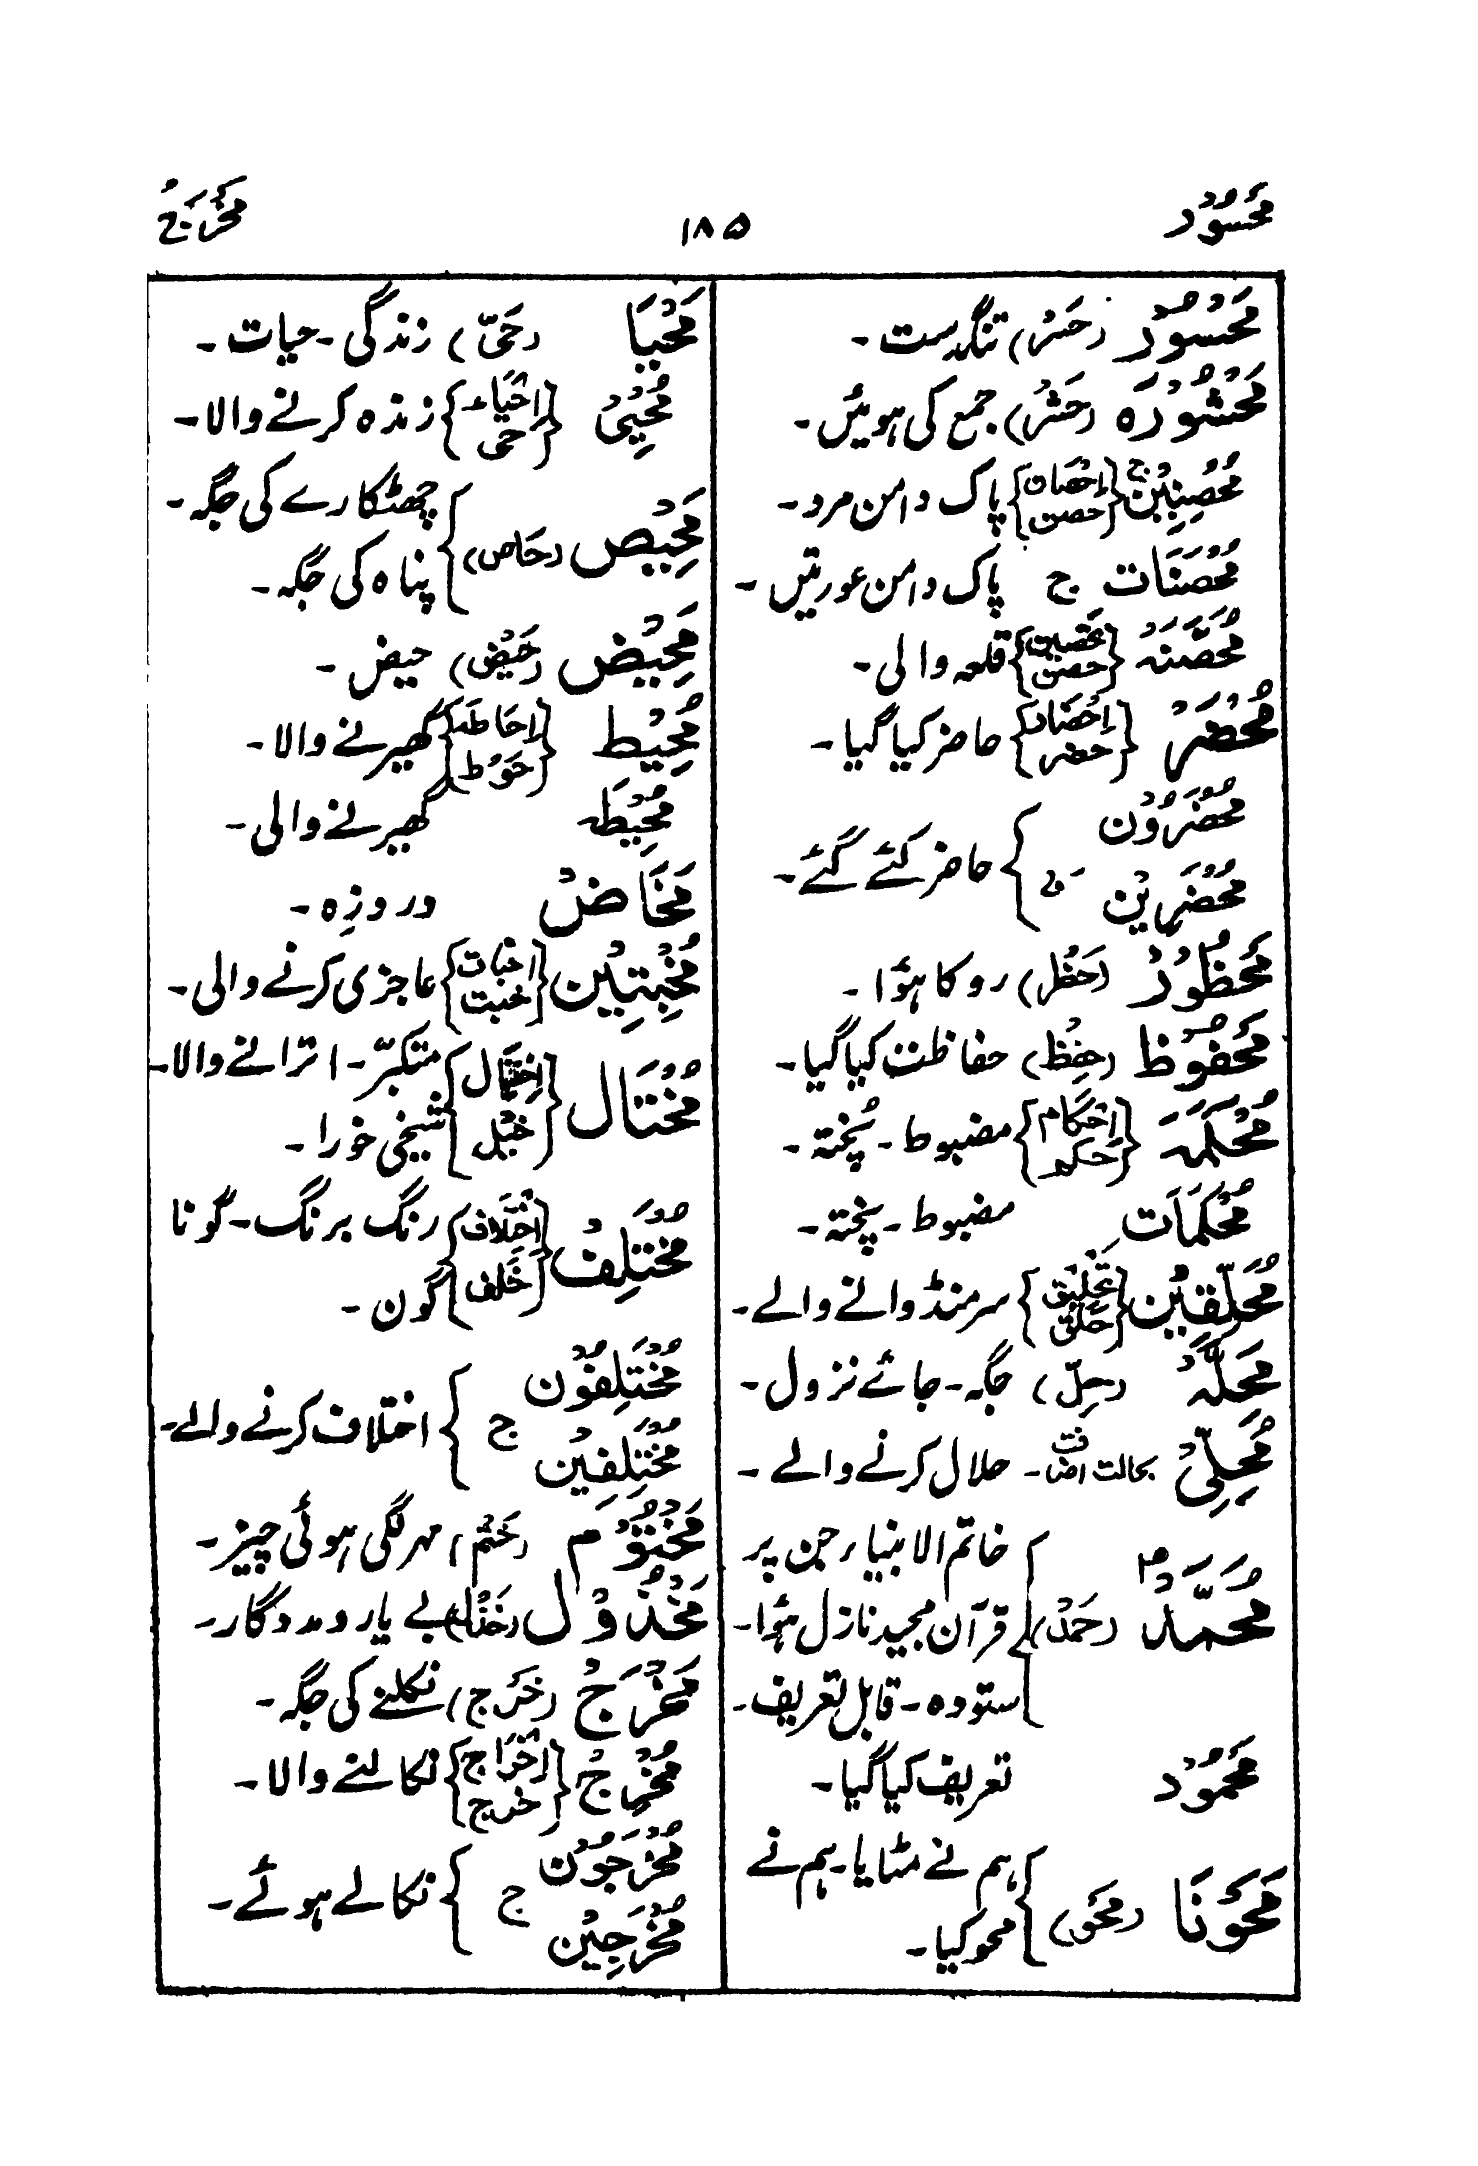 مَحْسُوْد ۱۸۵ مَخْرَجُ
مَحْسُوْرٌ (حَسْر) تنگدست۔
مَحْشُوْرَہ (حَشْر) جمع کی ہوئیں۔
مُحْصِنِیْنَ ج {اِحْصَان حصن} پاک دامن مرد۔
مُحْصَنَات ج پاک دامن عورتیں۔
مُحَصَّنَہ {تحصین حصن} قلعہ والی۔
مُحْضَر {اِحْضَار حضر} حاضر کیا گیا۔
مُحْضَرُوْن
مُحْضَرِیْن } حاضر کئے گئے۔
مَحْظُوْرٌ (حَظْر) روکا ہؤا۔
مَحْفُوْظ (حِفْظ) حفاظت کیا گیا۔
مُحْکَمَہ {اِحْکام حکم} مضبوط۔ پُختہ۔
مُحْکَمَات مضبوط۔ پختہ۔
مُحَلِّقِیْن {تَحْلِیْق حَلْق} سر منڈوانے والے۔
مَحِلَّہٗ (حِلّ) جگہ۔ جائے نزول۔
مُحِلِّیْ بحالت اضافت۔ حلال کرنے والے۔
مُحَمَّدٌ ص (حَمْد) } خاتم الانبیاء جن پر
قرآن مجید نازل ہؤا۔
ستودہ۔ قابل تعریف۔
مَحْمُوْد تعریف کیا گیا۔
مَحَوْنَا (مَحْو) } ہم نے مٹایا۔ ہم نے
محو کیا۔
مَحْیَا (حَیّ) زندگی۔ حیات۔
مُحْیِیْ {اِحْیَاء حی} زندہ کرنے والا۔
مَحِیْص (حَاص) } چھٹکارے کی جگہ۔
پناہ کی جگہ۔
مَحِیْض (حَیْض) حیض۔
مُحِیْط {اِحَاطہ حَوْط} گھیرنے والا۔
مُحِیْطَہ گھیرنے والی۔
مَخَاضْ دروزِہ۔
مُخْبِتِیْن {اِخبات خبت} عاجزی کرنے والی۔
مُخْتَال {اِخْتِیَال خَیْل} متکبّر۔ اترانے والا۔
شیخی خورا۔
مُخْتَلِفُ {اِخْتِلاف خَلف} رنگ برنگ۔ گونا
گون۔
مُخْتَلِفُوْن
مُخْتَلِفِیْن ج } اختلاف کرنے والے۔
مَخْتُوْم (خَتْم) مہر لگی ہوئی چیز۔
مَخْذُوْل (خَذْل) بے یار و مددگار۔
مَخْرَجُ (خَرَج) نکلنے کی جگہ۔
مُخْرِجُ {اِخْرَاج خرج} نکالنے والا۔
مُخْرَجُوْن
مُخْرَجِیْن ج } نکالے ہوئے۔